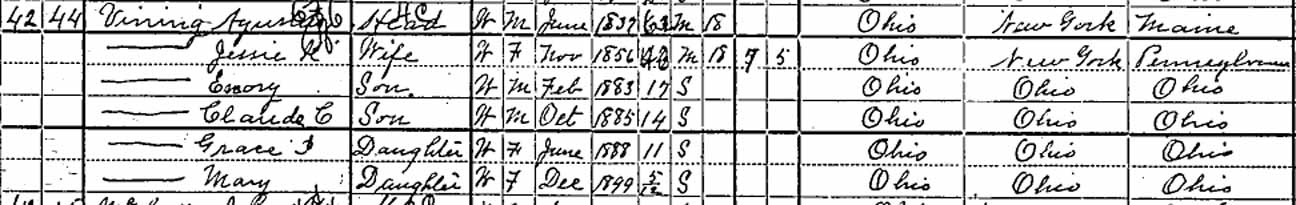 42 44 Vining Head W M June 1837 63 M 18 Ohio New York Maine
Jessie K Wife W F Nov 1856 43 M 18 7 5 Ohio New York Pennsylvania
Emory Son W M Feb 1883 17 S Ohio Ohio Ohio
Claude C Son W M Oct 1885 14 S Ohio Ohio Ohio
Grace I Daughter W F June 1888 11 S Ohio Ohio Ohio
Mary Daughter W F Dec 1899 5/12 S Ohio Ohio Ohio